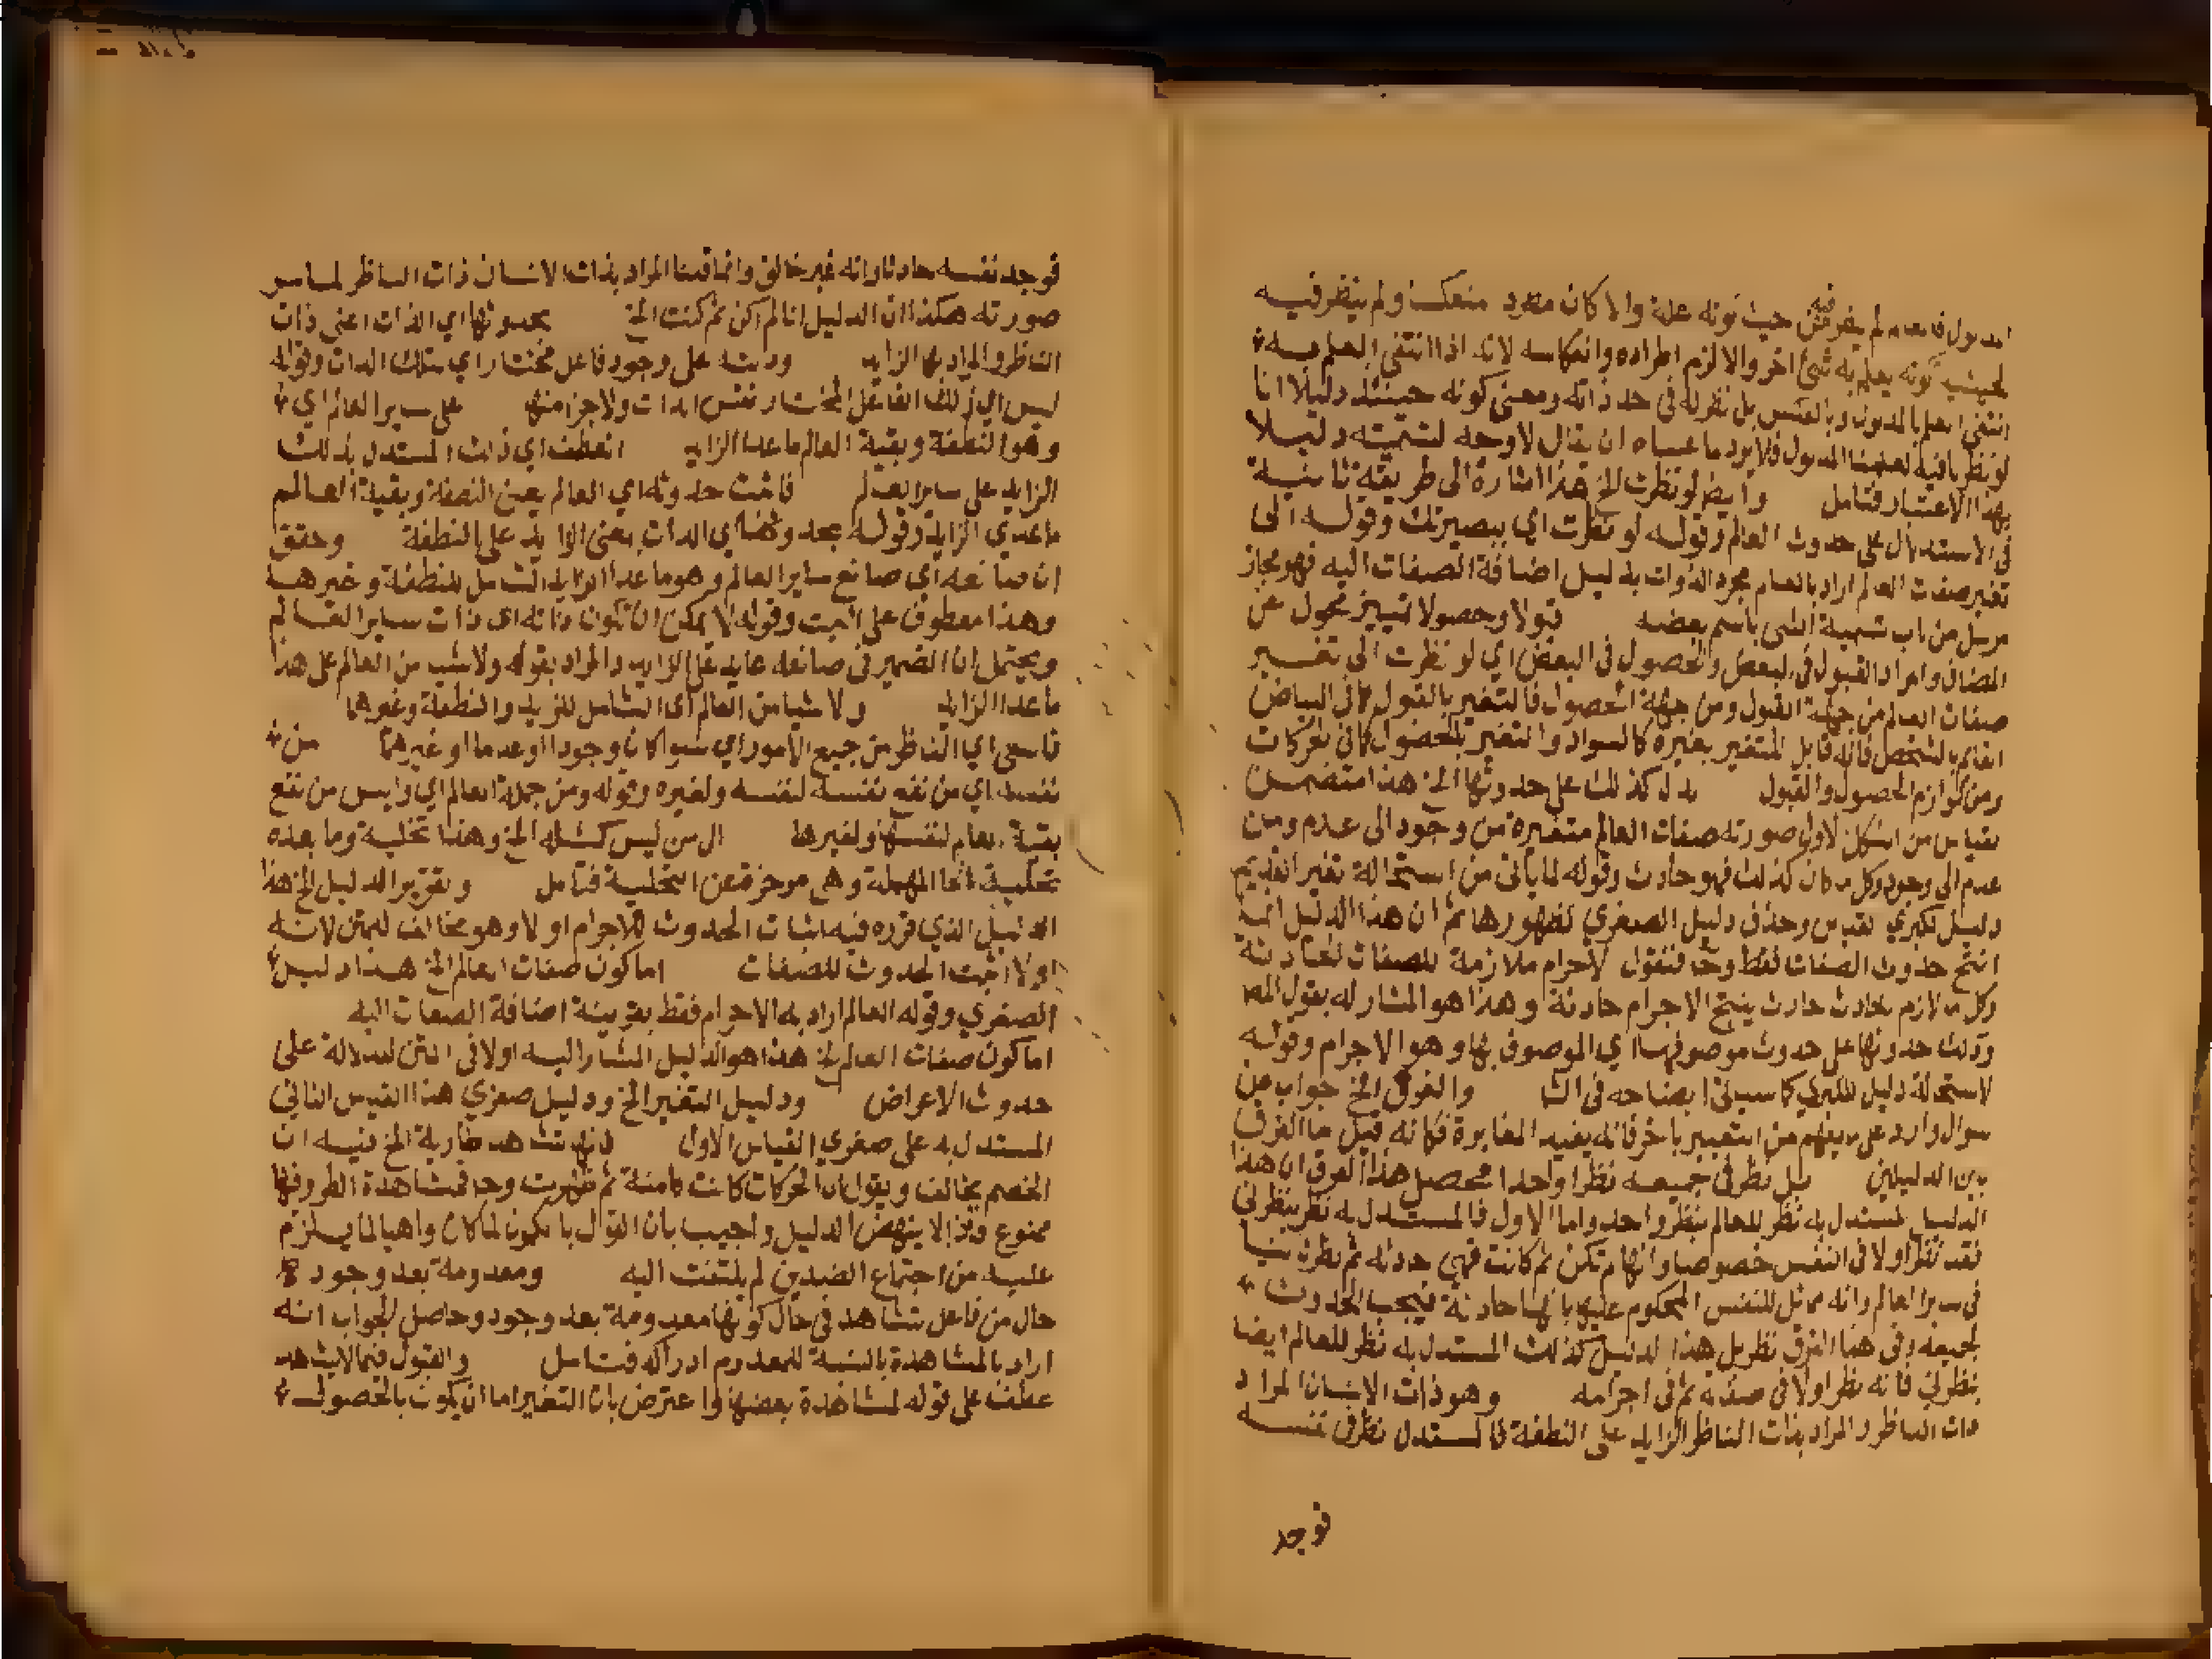 لم ينظر فيه من حيث كونه علة والا كان مطرد منعكسا ولم ينظر فيه
لحيثية كونه يعلم به شئ اخر والا لزم اطراده وانعكاسه لانه اذا انتفى العلم به
انتفى العلم بالمدلول وبالعكس بل نظر له في حد ذاته ومعنى كونه حينئذ دليلا انا
لو نظرنا فيه لعلمنا المدلول فلا يرد ما عساه ان يقال لا وجه لتسميته دليلا
بهذا الاعتبار فتامل وايضا لو نظرت الخ هذا اشارة الى طريقة ثانية
في الاستدلال على حدوث العالم وقوله لو نظرت اي ببصيرتك وقوله الى
تغير صفات العالم اراد بالعالم مجرد الذوات بدليل اضافة الصفات اليه فهو مجاز
مرسل من باب تسمية الشي باسم بعضه قبولا وحصولا تمييز محول عن
المضاف وامراد القبول في البعض والحصول في البعض اي لو نظرت الى تغير
صفات العالم من جهة القبول ومن جهة الحصول فالتغير بالقبول كما في البياض
القايم بالشخص فانه قابل للتغير بغيره كالسواد والتغير بالحصول كما في الحركات
ومن لوازم الحصول والقبول يدل كذلك على حدوثها الخ هذا متضمن
لقياس من الشكل الاول صورته صفات العالم متغيرة من وجود الى عدم ومن
عدم الى وجود وكل ما كان كذلك فهو حادث وقوله لما ياتي من استحالة تغير القديم
دليل لكبرى القياس وحذف دليل الصغرى لظهورها ثم ان هذا الدليل انما
انتج حدوث الصفات فقط وح فنقول الاجرام ملازمة للصفات الحادثة
وكل ملازم الحادث حادث ينتج الاجرام حادثة وهذا هو المشار له بقول المص
ودلت حدوثها على حدوث موصوفها اي الموصوف بها وهو الاجرام وقوله
لاستحالة دليل للكبرى كما سياتي ايضاحه في الث والفرق الخ جواب عن
سوال وارد على ما يفهم من التعبير باخر فانه يفيد المغايرة فكانه قيل ما الفرق
بين الدليلين بل نظر في جميعه نظرا واحدا محصل هذا الفرق ان هذا
الدليل المستدل به نظر للعالم بنظر واحد واما الاول فالمستدل به نظر بنظرين
فقد نظر اولا في النفس خصوصا وانها لم تكن ثم كانت فهي حادثه ثم نظر ثانيا
في ساير العالم وانه مماثل للنفس المحكوم عليها بانها حادثة فيجب الحدوث
لجميعه وفي هذا الفرق نظر بل هذا الدليل كذلك المستدل به نظر للعالم ايضا
بنظرين فانه نظر اولا في صفاته ثم في اجرامه وهو ذات الانسان المراد
ذات الناظر والمراد بذات الناظر الزايد على النطفة فالمستدل نظر في نفسه
فوجد
فوجد نفسه حادثا وانه غير خالق وانما قلنا المراد بذات الانسان ذات الناظر لما مر
صورته هكذا ان الدليل انا لم اكن ثم كنت الخ بحدوثها اي الذات اعني ذات
الناظر والمراد بها الزايد ودلته على وجود فاعل مختار اي بتلك الذات وقوله
ليس اي ذلك الفاعل المختار نفس الذات ولا جزا منها على ساير العالم اي
وهو النطفة وبقية العالم ما عدا الزايد انعطف اي ذلك المستدل بذلك
الزايد على ساير العالم فاثبت حدوثه اي العالم يعني النطفة وبقية العالم
ما عدى الزايد وقوله بحدوثها اي الذات يعني الزايد على النطفة وحقق
ان صانعه اي صانع ساير العالم وهو ما عدا الزايد الشامل للنطفة وغيرها
وهذا معطوف على اثبت وقوله لا يمكن ان تكون ذاته اي ذات ساير العالم
ويحتمل ان الضمير في صانعه عايد على الزايد والمراد بقوله ولا شيا من العالم على هذا
ما عدا الزايد ولا شيا من العالم اي الشامل للزيد والنطفة وغيرهما
فاسعى اي الناظر من جميع الامور اي سوا كان وجودا او عدما او غيرهما من
نفسه اي من نفع نفسه لنفسه ولغيره وقوله ومن جملة العالم اي وايس من نفع
بقية العالم لنفسها ولغيرها الى من ليس كمثله الخ وهذا تخلية وما بعده
تحلية بالحا المهملة وهي موخرة عن التخلية فتامل وتقرير الدليل الخ هذا
الدليل الذي قرره فيه اثبات الحدوث للاجرام اولا وهو مخالف للمتن لانه
اولا اثبت الحدوث للصفات اما كون صفات العالم الخ هذا دليل
الصغرى وقوله العالم اراد به الاجرام فقط بقرينة اضافة الصفات اليه
اما كون صفات العالم الخ هذا هو الدليل المشار اليه اولا في المتن لدلالة على
حدوث الاعراض ودليل التغير الخ ودليل صغرى هذا القياس الثاني
المستدل به على صغرى القياس الاول فانها تشاهد طارية الخ فيه ان
الخصم يخالف ويقول ان الحركات كانت كامنة ثم ظهرت وح فمشاهدة الطرو فيها
ممنوع وح لا ينهض الدليل واجيب بان القول بالكمون لما كان واهيا لما يلزم
عليه من اجتماع الضدين لم يلتفت اليه ومعدومة بعد وجود
حال من فاعل تشاهد في حال كونها معدومة بعد وجود وحاصل الجواب انه
اراد بالمشاهدة بالنسبة للمعدوم ادراكه فتامل والقبول فيما لا يشاهد
عطف على قوله لمشاهدة بعضها واعترض بان التغير اما ان يكون بالحصول